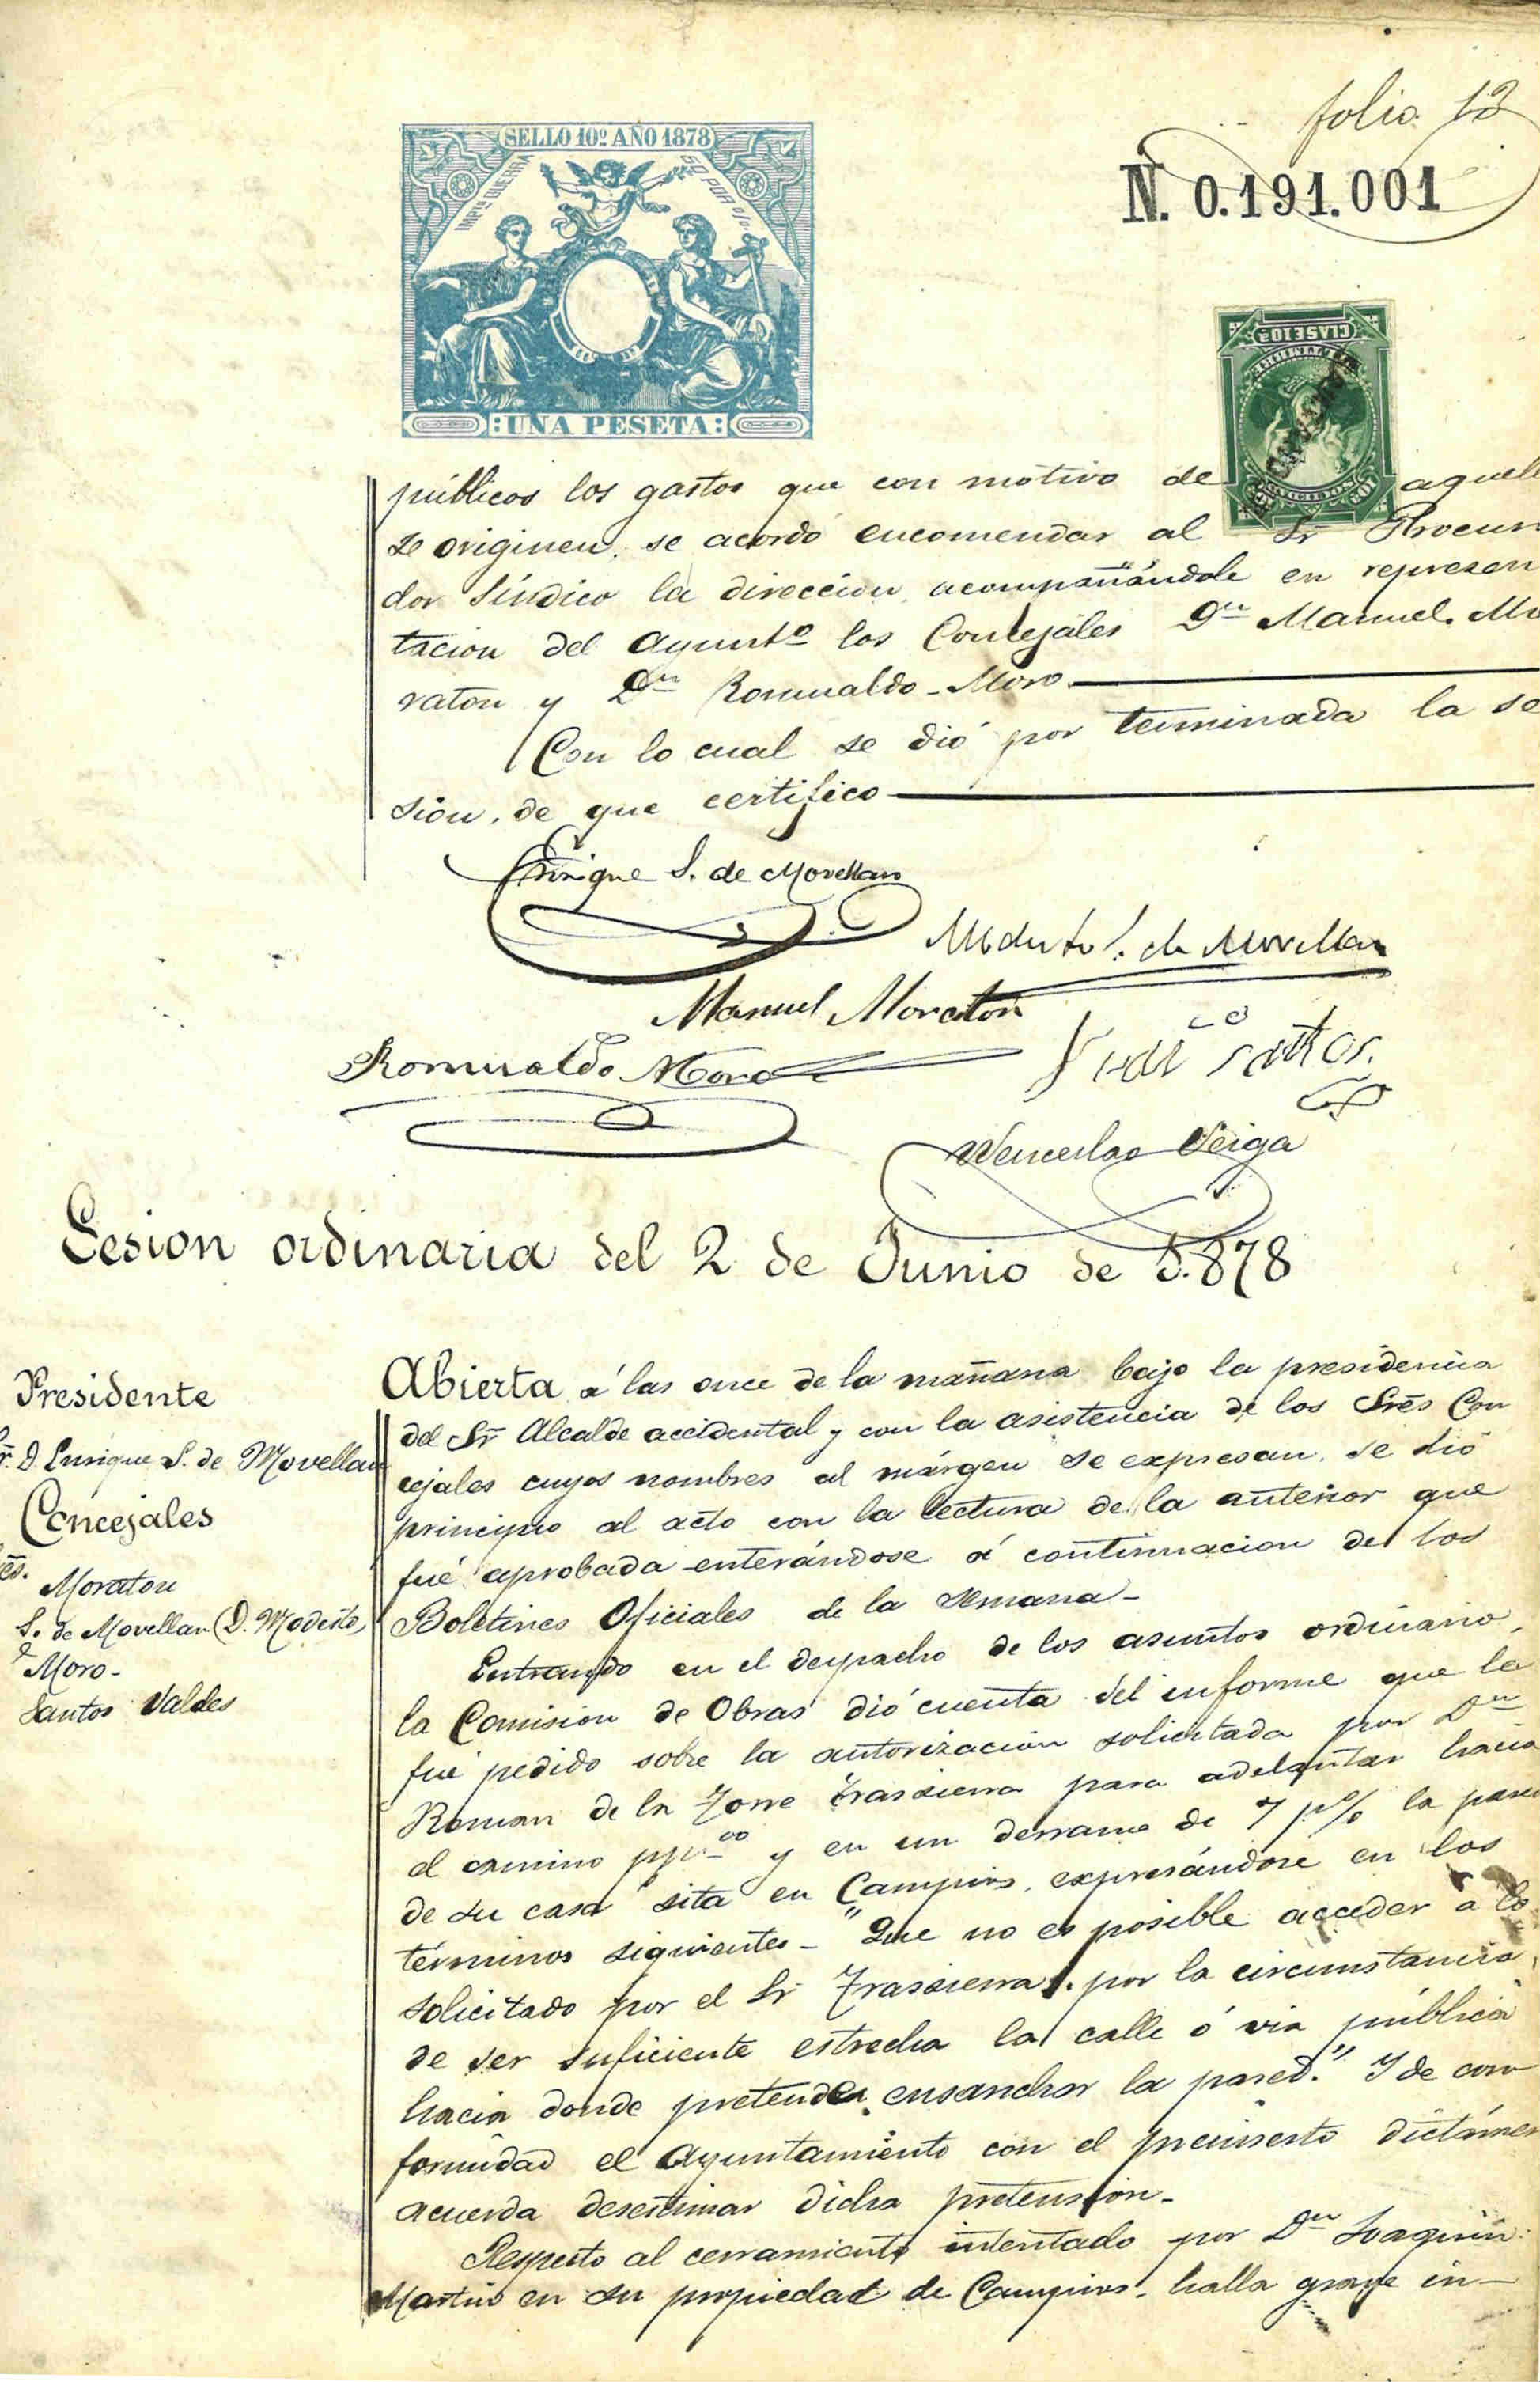 folio. 12
N. 0.191.001
SELLO 10º AÑO 1878
IMPTº GUERRA
50 POR 0/0
UNA PESETA
CLASE 10ª
públicos los gastos que con motivo de aquell
se originen, se acordó encomendar al Sr Procur
dor Síndico la direccion, acompañándole en represen
tacion del Ayuntº los Concejales Dn Manuel Mo
raton y Dn Romualdo Moro.
Con lo cual se dió por terminada la se
sion, de que certifico
Enrique S. de Movellan
Modesto S. de Movellan
Manuel Moraton
Romualdo Moro
Santos
Wenceslao Veiga
Sesion ordinaria del 2 de Junio de 1.878
Presidente
Sr. D Enrique S. de Movellan
Concejales
Moraton
S. de Movellan (D. Modesto)
Moro-
Santos Valdes
Abierta á las once de la mañana bajo la presidencia
del Sr Alcalde accidental y con la asistencia de los Sres Con
cejales cuyos nombres al márgen se expresan, se dió
principio al acto con la lectura de la anterior que
fué aprobada enterándose á continuacion de los
Boletines Oficiales de la semana-
Entrando en el despacho de los asuntos ordinario,
la Comision de Obras dió cuenta del informe que la
fué pedido sobre la autorizacion solicitada por Dn
Roman de la Torre Trassierra para adelantar hacia
el camino ppco y en un derrame de 7 p% la pared
de su casa sita en Campios, expresándose en los
términos siguientes- "Que no es posible acceder á lo
solicitado por el Sr Trassierra, por la circunstancia
de ser suficiente estrecha la calle ó via pública
hacia donde pretende ensanchar la pared." Y de con
formidad el Ayuntamiento con el preinserto dictámen
acuerda desestimar dicha pretension-
Respecto al cerramiento intentado por Dn Joaquin
Martin en su propiedad de Campios, halla grave in-